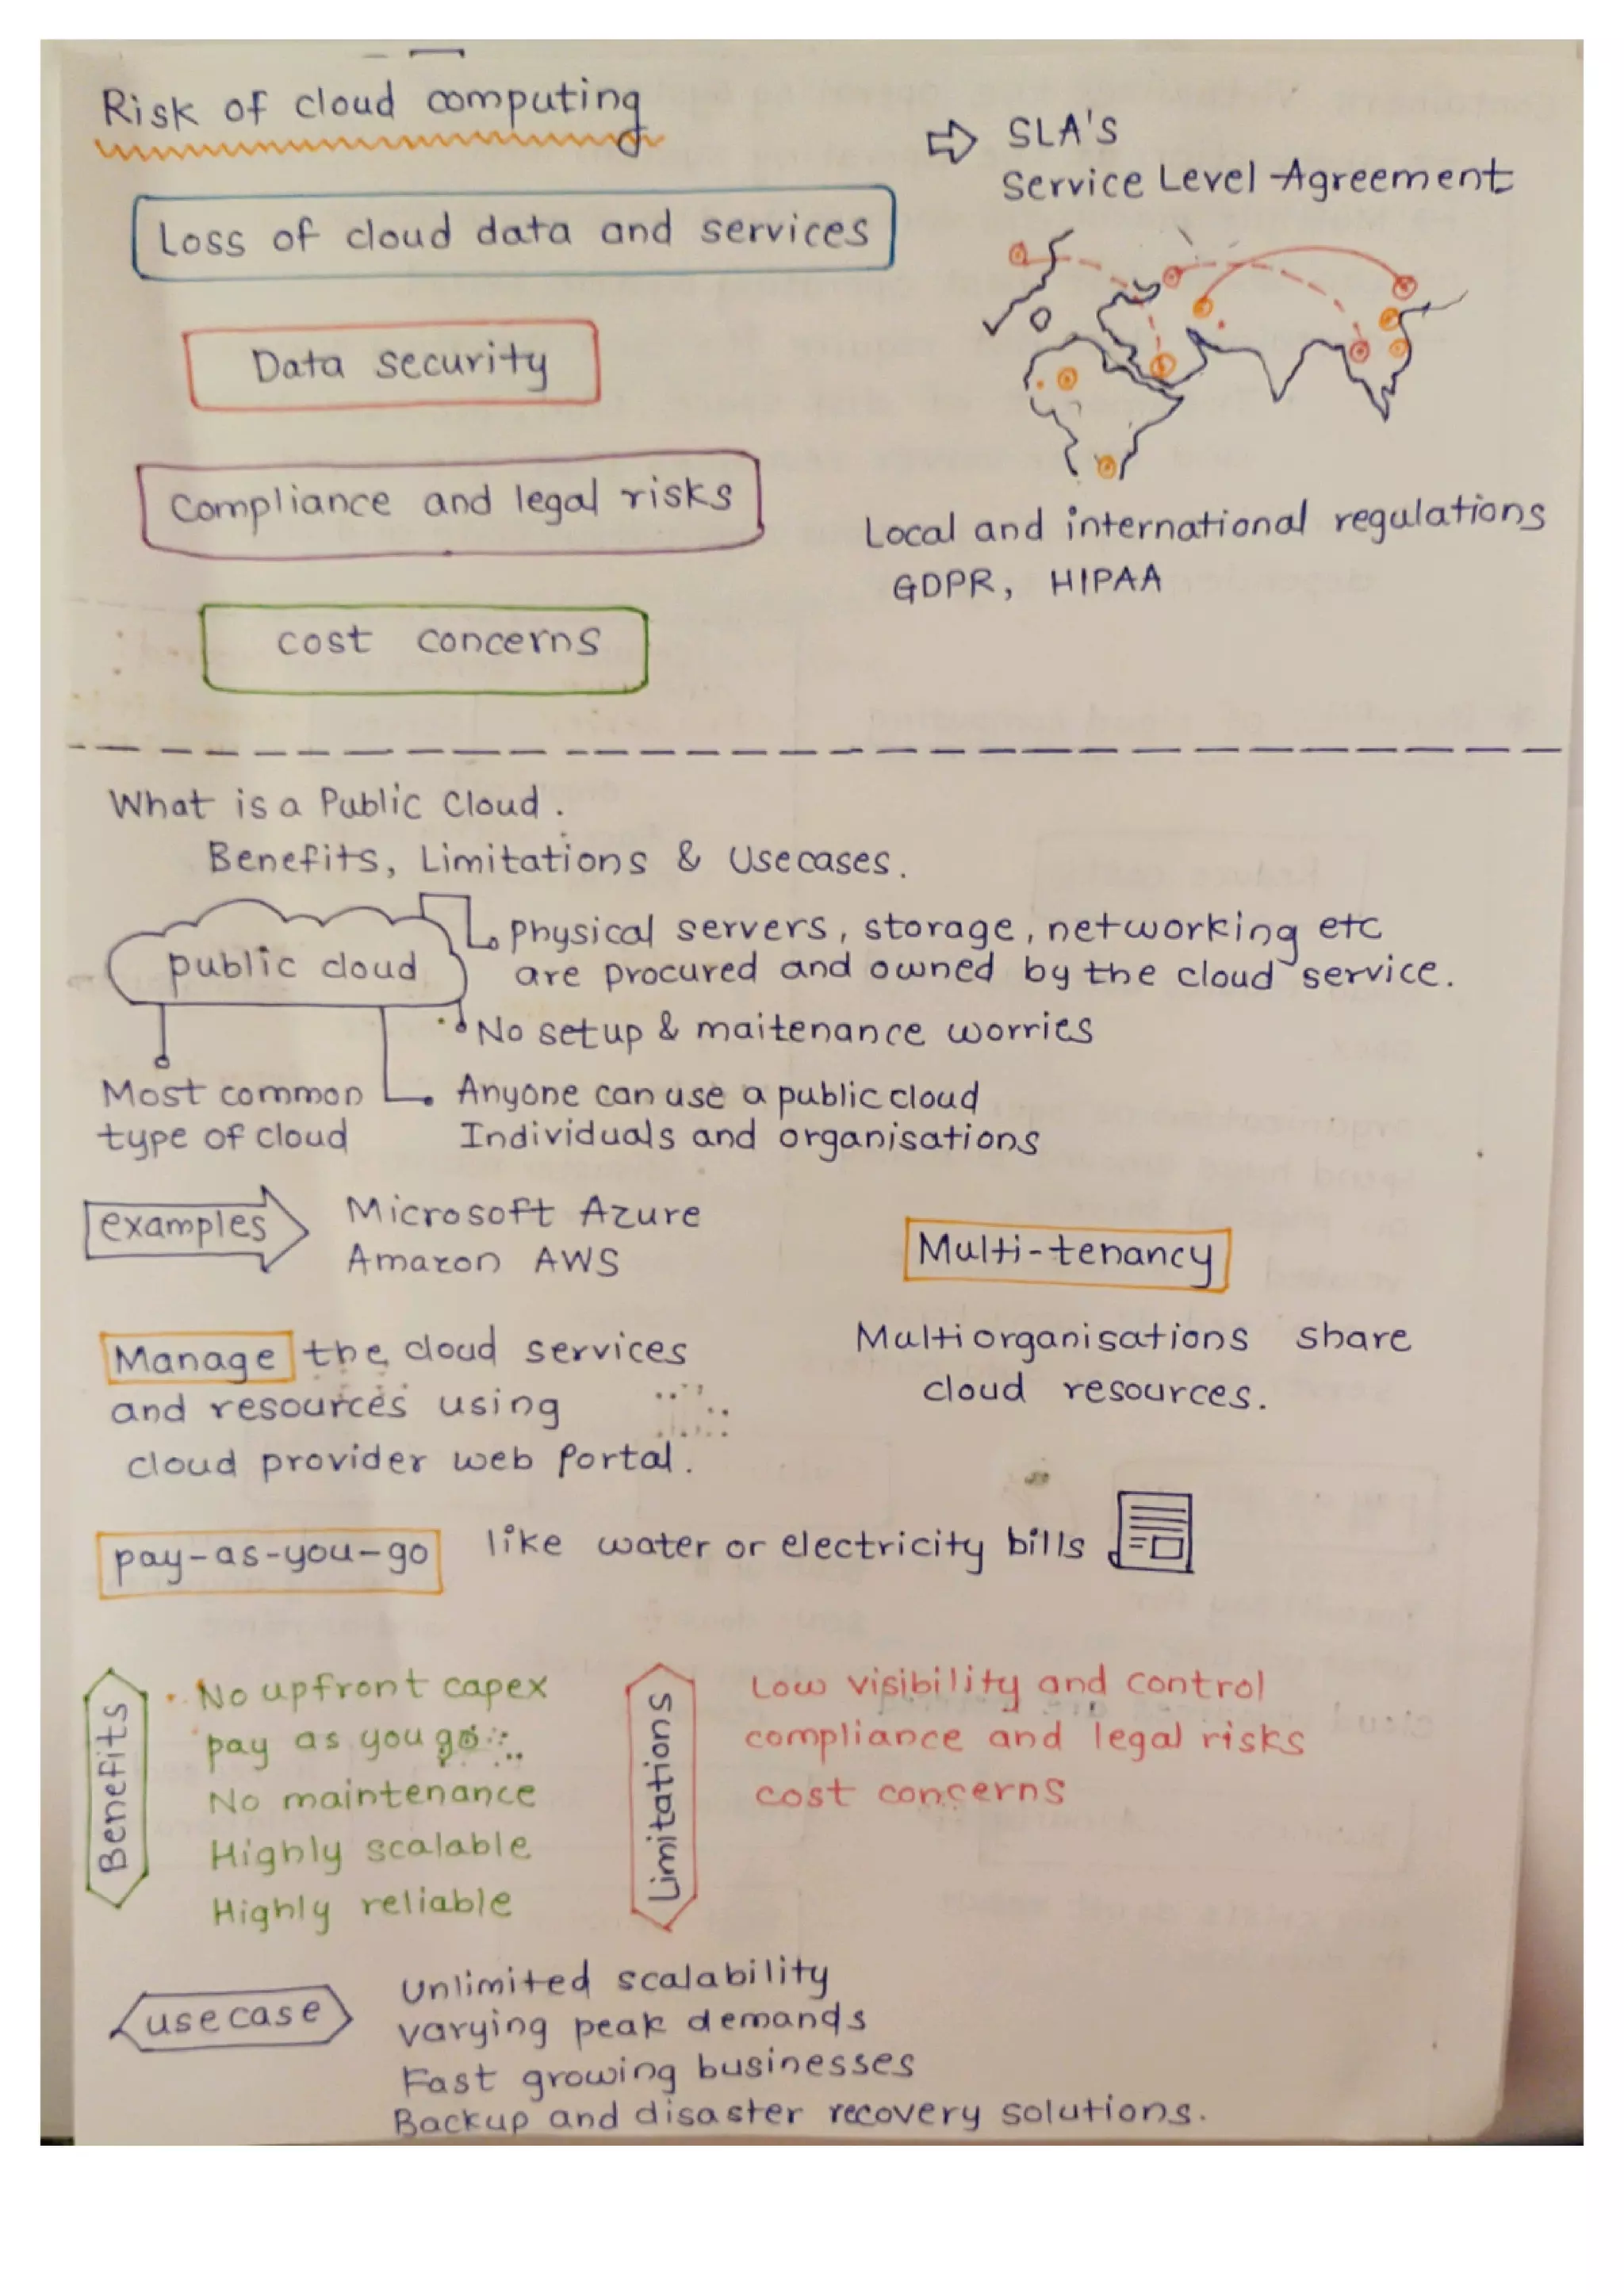 Risk of cloud computing
⇨ SLA's
Service Level Agreement
Loss of cloud data and services
Data security
Compliance and legal risks
Local and international regulations
GDPR, HIPAA
cost concerns
What is a Public Cloud.
Benefits, Limitations & Usecases.
public cloud
Physical servers, storage, networking etc
are procured and owned by the cloud service.
No setup & maitenance worries
Most common
type of cloud
Anyone can use a public cloud
Individuals and organisations
examples
Microsoft Azure
Amazon AWS
Multi-tenancy
Multi organisations share
cloud resources.
Manage the cloud services
and resources using
cloud provider web portal.
pay-as-you-go like water or electricity bills
Benefits
No upfront capex
pay as you go
No maintenance
Highly scalable
Highly reliable
Limitations
Low visibility and control
compliance and legal risks
cost concerns
use case
Unlimited scalability
varying peak demands
Fast growing businesses
Backup and disaster recovery solutions.